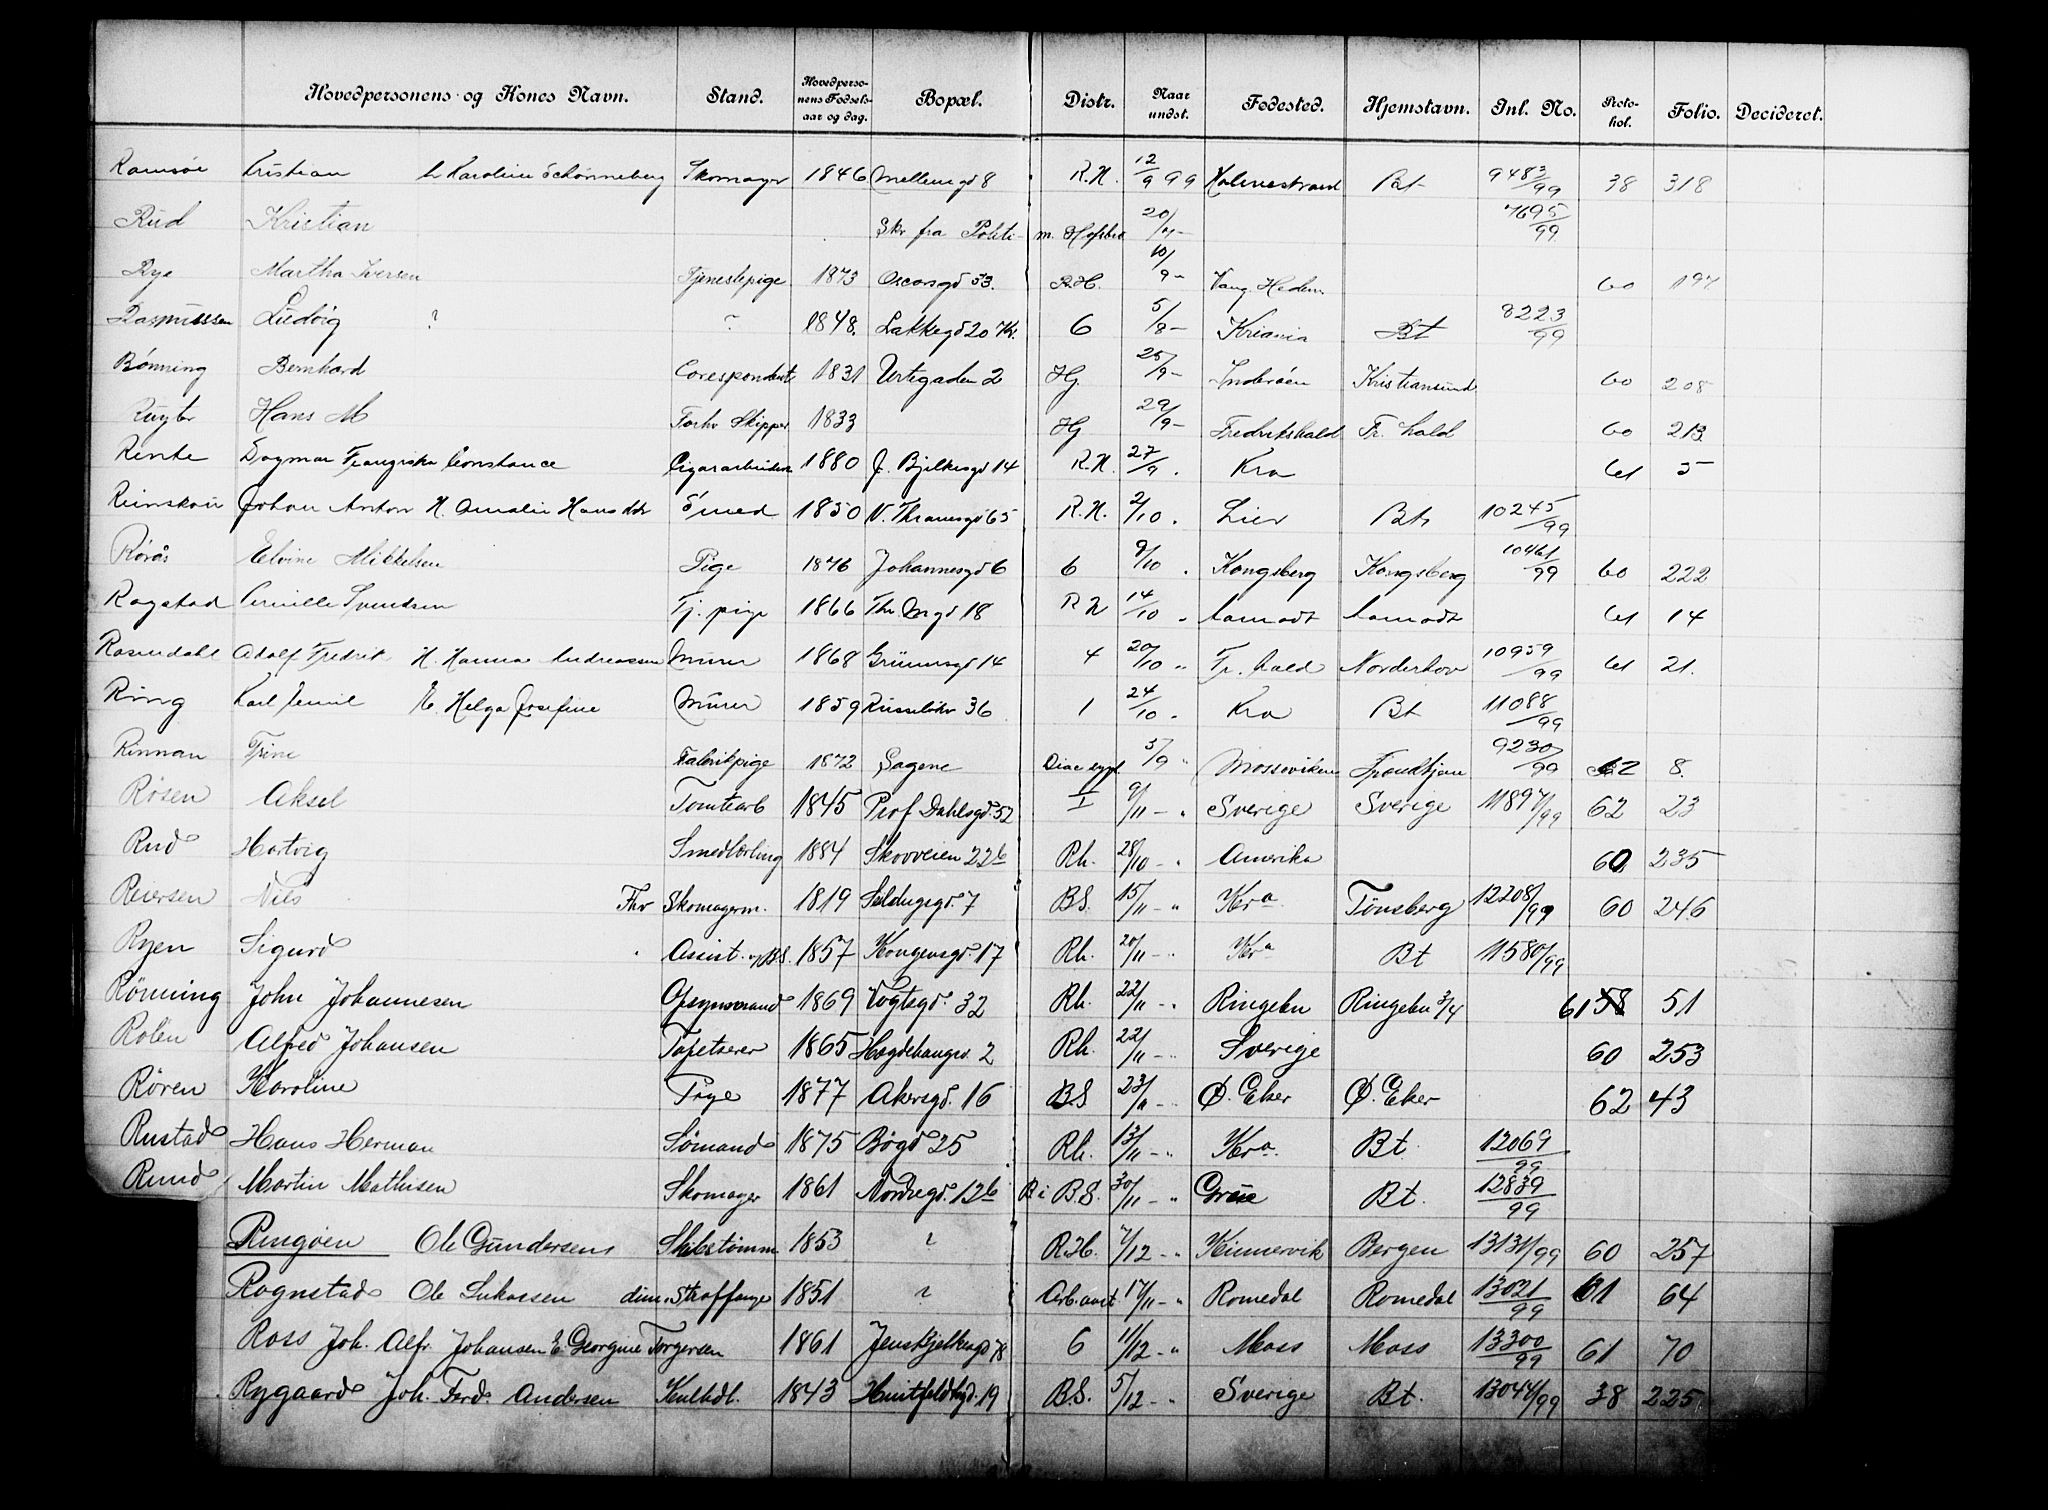 Hovedpersonens og Kones Navn. Stand. Hovedpersonens Fødselsaar og dag. Bopæl. Distr. Naar undst. Fødested. Hjemstavn. Inl. No. Protokol. Folio. Decideret.
Ramsøe Cristian h Karoline Schønneberg Skomager 1846 Mellemgd 8 R.H. 12/9 99 Holmestrand Bt 9483/99 38 318
Rud Kristian Skr fra Politi m. Hofsbro 20/ 7695/99
Rye Martha Iversen Tjenestepige 1873 Oscarsgd 33. R.H. 10/9 - Vang. Hedem. 60 197
Rasmussen Ludvig ? ? 1848. Lakkegd 20 6 5/8 - Kriania Bt 8223/99
Rönning Bernhard Corespondent 1831 Urtegaden 2 Hg 25/9 - Inderøen Kristiansund 60 208
Hans M Forhv Skipper 1833 Hg 29/9 - Fredrikshald Fr. hald 60 213
Rente Dagmar Franziska Constance Cigararbeiderske 1880 J. Bjelkesgd 14 R.H. 27/9 . Kra 61 5
Reinskou Johan Anton H. Amalie Hansddr Smed 1850 V. Thranesgd 65 R.H. 2/10 . Lier Bt 10245/99
Rörås Elvine Mikkelsen Pige 1876 Johannesgd 6 6 9/10 . Kongsberg Kongsberg 10461/99 60 222
Rogstad Svendsen Tj. pige 1866 Th. Mgd 18 R H 14/10 . Aamodt Aamodt 61 14
Rosendahl Adolf Fredrik H. Hanna Andreassen Murer 1868 Grünersgd 14 4 20/10 " Fr. hald Norderhov 10959/99 61 21.
Ring Karl Emil E. Helga Josefine Murer 1859 Russeløkv 36 1 24/10 . Kra Bt 11088/99
Rinnan Trine Fabrikpige 1872 Sagene Diac syg. 5/9 " Mosseviken Trondhjem 9230/99 62 8.
Rosen Aksel Tomtearb 1845 Prof Dahlsgd. 52 I 9/11 - " Sverige Sverige 11897/99 62 23
Rud Hartvig Smedlærling 1884 Skovveien 22b Rh. 28/10 - " Amerika 60 235
Reiersen Nils Fhv Skomagerm. 1819 Seildugsgd. 7 B.S. 15/11 - " Kra. Tønsberg 12208/99 60 246
Ryen Sigurd Assist. v/B.S. 1857 Kongensgd. 17 Rh. 20/11 - " Kra Bt 11580/99
Rönning John Johannesen Opsynsmand 1869 Vogtsgd. 32 Rh. 22/11 - " Ringebu Ringebu 3/4 61 58 51
Rolén Alfred Johansen Tapetserer 1865 Hægdehaugsv. 2 Rh. 22/11 - " Sverige 60 253
Røren Karoline Pige 1877 Akersgd. 16 B.S 23/11 - " Ø. Eker Ø. Eker 62 43
Rustad Hans Herman Sømand 1875 Bøgd 25 Rh. 13/11 - " Kra. Bt. 12069/99
Ruud Martin Mathisen Skomager 1861 Nordregd. 12b B i B.S. 30/11 - " Grue Bt. 12839/99
Ringøen Ole Gundersen Skibstømm. 1853 ? R.H. 7/12 - " Kinnervik Bergen 13131/99 60 257
Rognstad Ole Lukassen dim. Straffange 1851 ? Arb.anst 17/11 - " Romedal Romedal 13021/99 61 64
Ross Joh. Alfr. Johansen E. Georgine Torgersen 1861 Jens Bjelkesgd 78 6 11/12 - " Moss Moss 13300/99 61 70
Rygaard Joh. Ferd. Andersen Kulhdl. 1843 Huitfeldtsgd. 19 B.S. 5/12 - " Sverige Bt. 13044/99 38 225